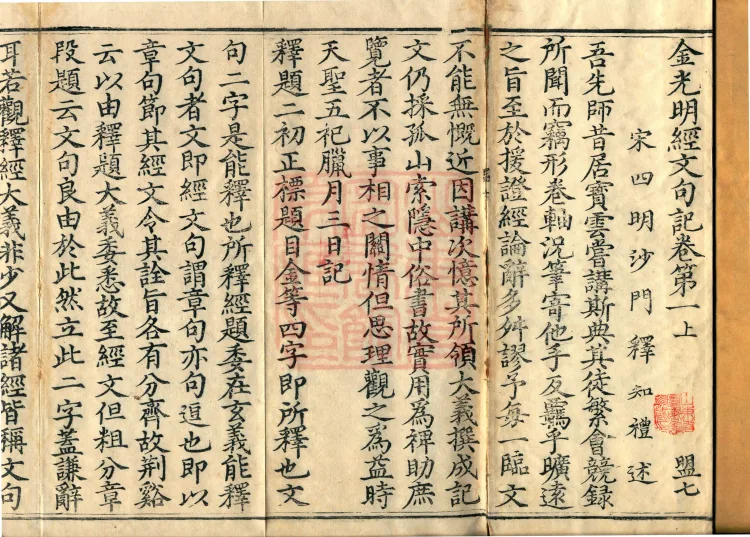 金光明經文句記卷第一上 盟七
宋四明沙門釋知禮述
吾先師昔居寶雲嘗講斯典其徒繁會競録
所聞而竊形卷軸況筆寄他手反羈乎曠遠
之旨至於援證經論辭多舛謬予每一臨文
不能無慨近因講次憶其所領大義撰成記
文仍採孤山索隱中俗書故實用為裨助庶
覽者不以事相之關情但思理觀之為益時
天聖五祀臘月三日記
釋題二初正標題目金等四字即所釋也文
句二字是能釋也所釋經題委在玄義能釋
文句者文即經文句謂章句亦句逗也即以
章句節其經文令其詮旨各有分齊故荆谿
云以由釋題大義委悉故至經文但粗分章
段題云文句良由於此然立此二字蓋謙辭
耳若觀釋經大義非少又解諸經皆稱文句